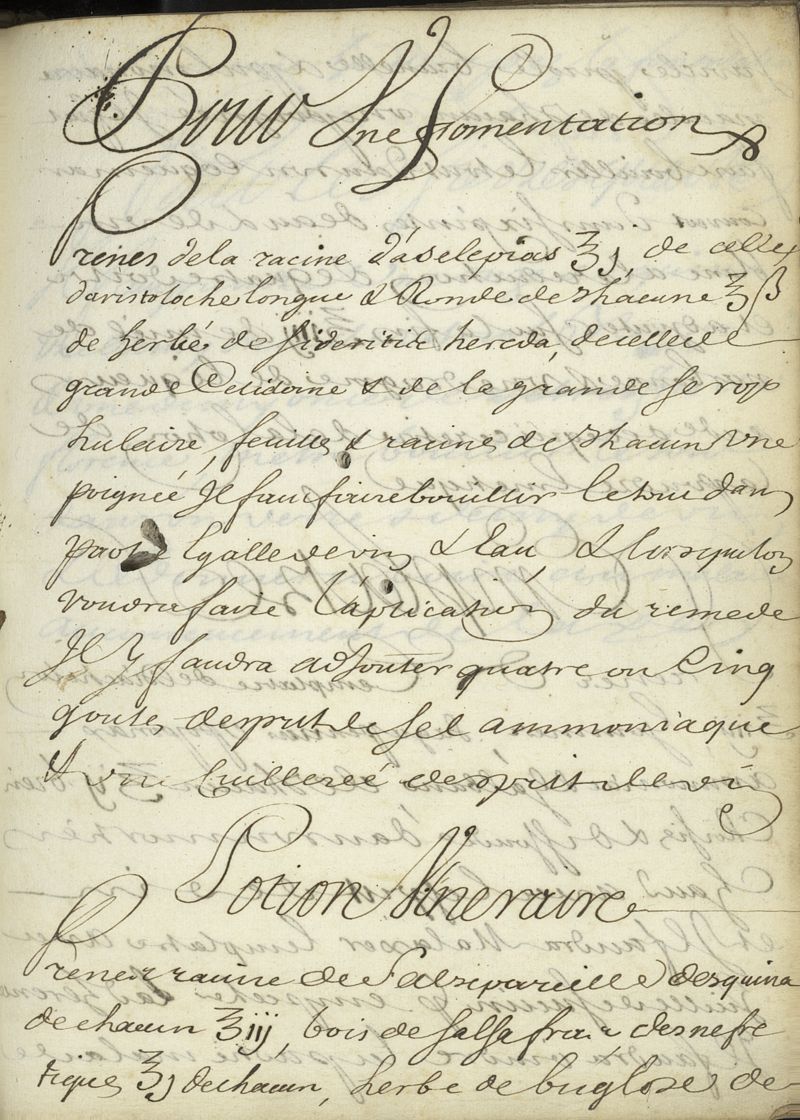 Pour Une fomentation
Prenés de la racine d'asclepias ℥j, de celle
d'aristoloche longue & Ronde de chacune ℥ß
de herbe de sideritis hereda, de celle de
grande Celidoine & de la grande scrop
hulaire, feuilles & racines de chacun une
poignée Il faut faire bouillir le tout dans
partie Egalle de vin & d'eau, & lorsqu'on
voudra faire l'aplication du remede
Il y faudra adjouter quatre ou Cinq
goutes d'esprit de sel ammoniaque
& une cuilleréé d'esprit de vin
Potion Vulneraire
Prener racine de Salsepareille d'esquina
de chacun ℥iij, bois de salsafrax des nefre
tique ℥j de chacun, herbe de buglose de